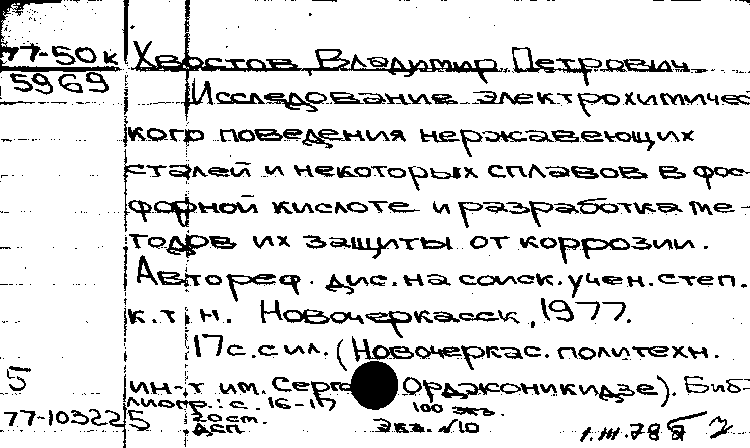 77-50к Хвостов, Владимир Петрович
5969
Исследование электрохимичес
кого поведения нержавеющих
сталей и некоторых сплавов в фос-
форной кислоте и разработка ме-
тодов их защиты от коррозии.
Автореф. дис. на соиск. учен. степ.
к.т.н. Новочеркасск, 1977.
17с. с ил. (Новочеркас. политехн.
5 ин-т им. Серго Орджоникидзе). Биб-
лиогр.: с. 16-17 100 экз.
77-103225 20ст.
ДСП Экз. №10